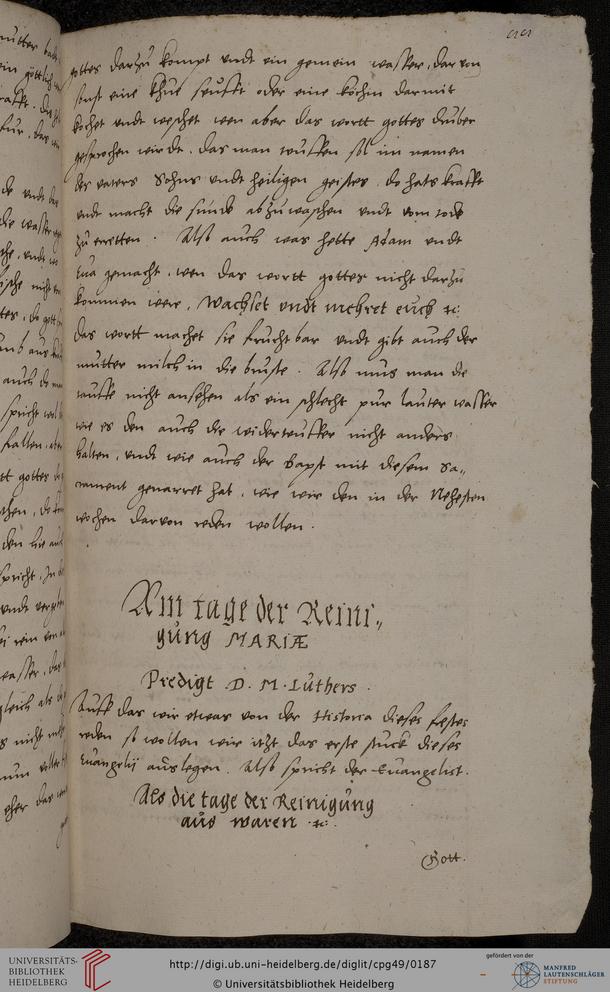 gottes darzu kompt undt ein gemein wasser, darvon
sonst eine khue seufft oder eine köchin darmit
kochet undt weschet wen aber das wortt gottes druber
gesprochen wirdt, das man teuffen sol im namen
des vaters Sohns undt heiligen geistes, do hats krafft
undt macht die sunde abzuwaschen undt vom tode
zu eretten. Also auch was hette Adam undt
Eva gemacht, wen das wortt gottes nicht darzu
kommen were, Wachset undt mehret euch ꝛc.
Das wortt machet sie fruchtbar undt gibt auch der
mutter milch in die bruste. Also mus man die
tauffe nicht ansehen als ein schlecht pur lauter wasser
wie es den auch die widerteuffer nicht anders
halten, undt wie auch der Bapst mit diesem Sa„
crament genarret hat, wie wir den in der Nehesten
wochen darvon reden wollen.
Am tage der Reini„
gung MARIÆ
Predigt D. M. Luthers.
Auff das wir etwas von der Historia dieses festes
reden so wollen wir itzt das erste stuck dieses
Euangelij auslegen. Also spricht der Euangelist.
Als die tage der Reinigung
aus waren ꝛc.
Gott.
UNIVERSITÄTS-
BIBLIOTHEK
HEIDELBERG
http://digi.ub.uni-heidelberg.de/diglit/cpg49/0187
© Universitätsbibliothek Heidelberg
gefördert von der
MANFRED
LAUTENSCHLÄGER
STIFTUNG